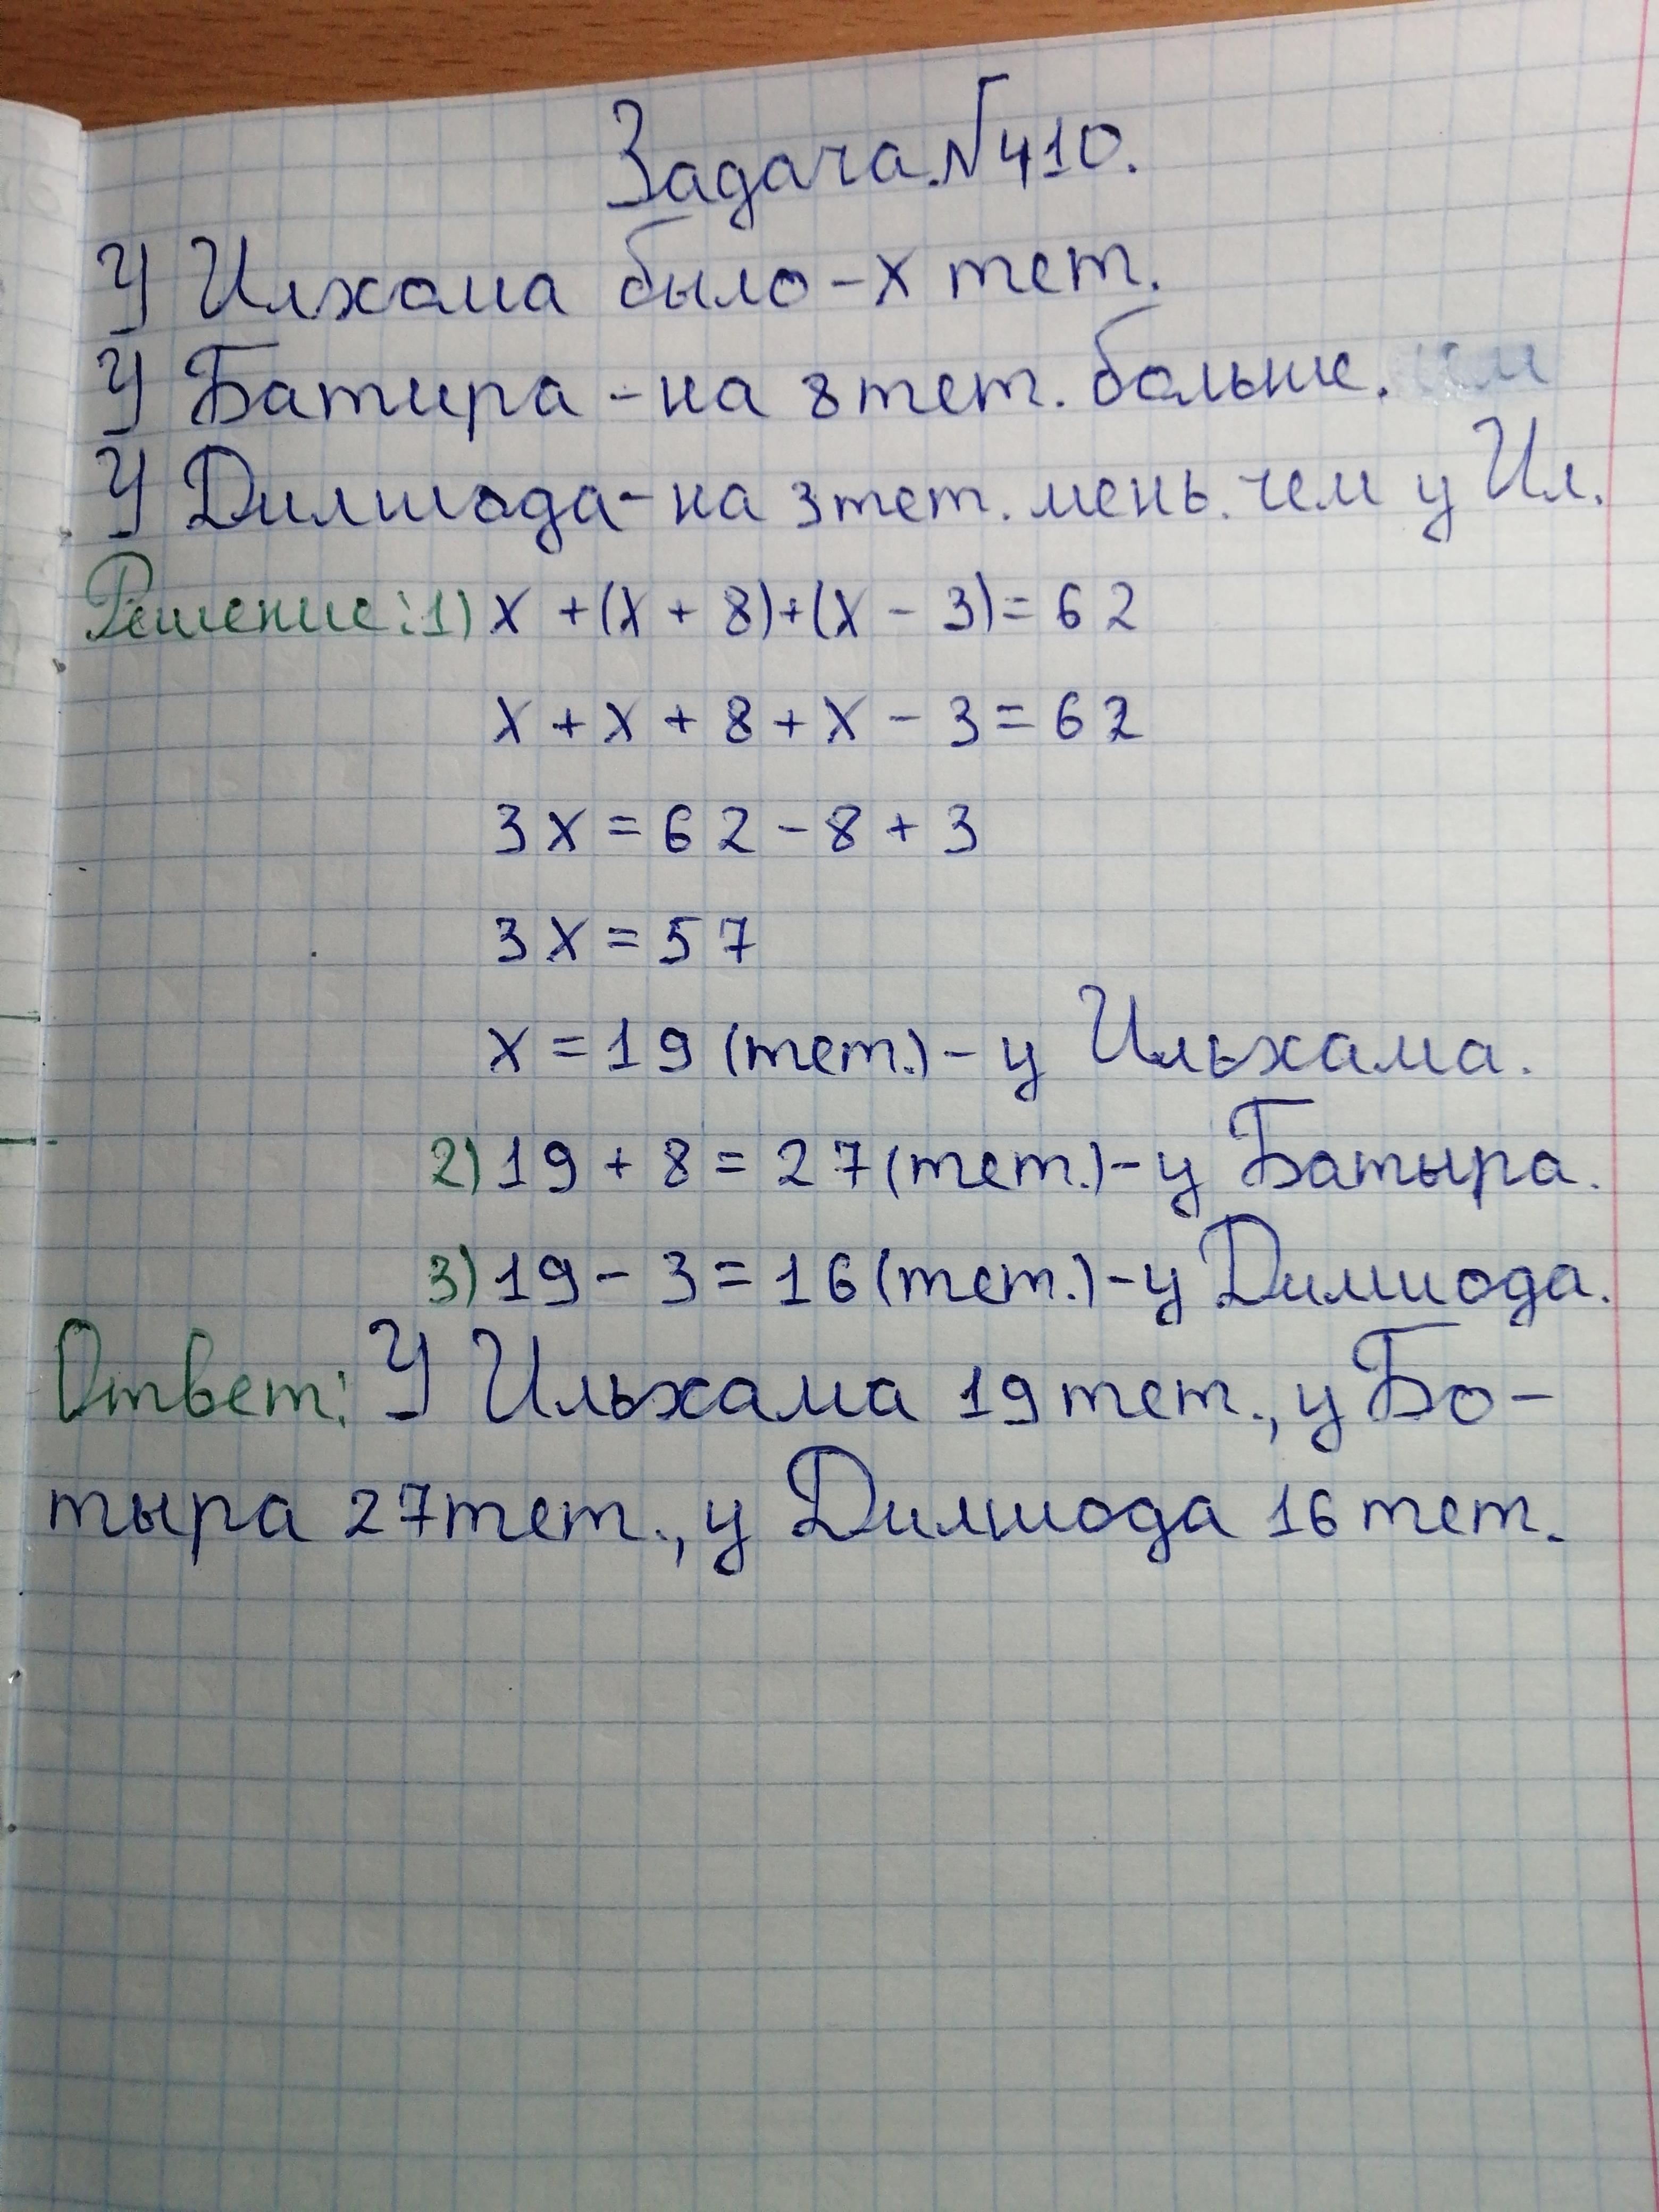 Задача №410.
У Илхама было - x тет.
У Батира - на 8 тет. больше.
У Дилшода - на 3 тет. мень. чем у Ил.
Решение: 1) x + (x + 8) + (x - 3) = 62
x + x + 8 + x - 3 = 62
3x = 62 - 8 + 3
3x = 57
x = 19 (тет.) - у Ильхама.
2) 19 + 8 = 27 (тет.) - у Батыра.
3) 19 - 3 = 16 (тет.) - у Дилшода.
Ответ: У Ильхама 19 тет., у Бо-
тыра 27 тет., у Дилшода 16 тет.